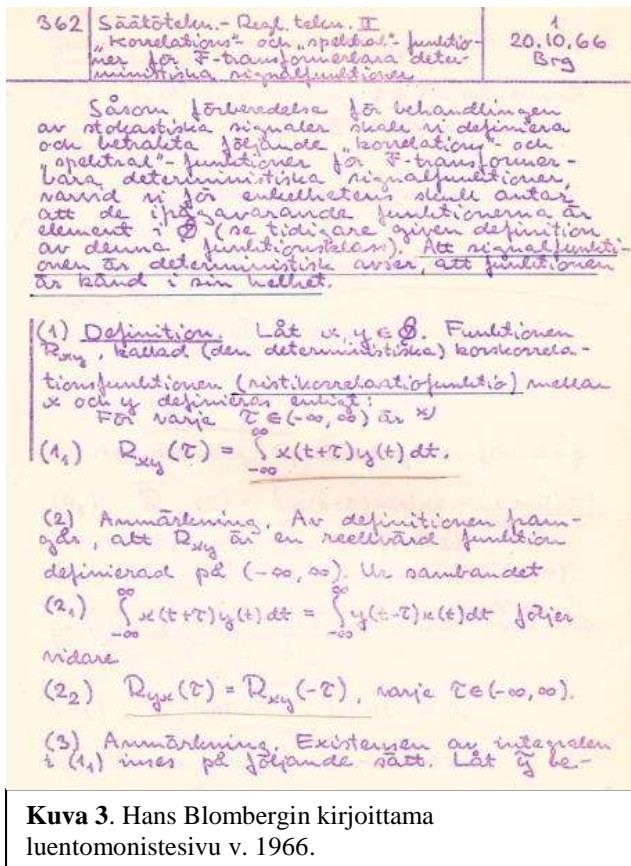 362
Säätötekn.- Regl. tekn. II
„Korrelations"- och „spektral"-funktio-
ner för F-transformerbara deter-
ministiska signalfunktioner
1
20.10.66
Brg
Såsom förberedelse för behandlingen
av stokastiska signaler skall vi definiera
och betrakta följande „korrelations"- och
„spektral"-funktioner för F-transformer-
bara deterministiska signalfunktioner,
varvid vi för enkelhetens skull antar
att de ifrågavarande funktionerna är
element i 𝒟 (se tidigare given definition
av denna funktionsklass). Att signalfunkti-
onen är deterministisk avser, att funktionen
är känd i sin helhet.
(1) Definition. Låt x, y ∈ 𝒟. Funktionen
R_xy, kallad (den deterministiska) korskorrela-
tionsfunktionen (ristikorrelaatiofunktio) mellan
x och y definieras enligt:
För varje τ ∈ (-∞, ∞) är x)
(1₁) R_xy(τ) = ∫_{-∞}^{∞} x(t+τ)y(t)dt.
(2) Anmärkning. Av definitionen fram-
går, att R_xy är en reellvärd funktion
definierad på (-∞, ∞). Ur sambandet
(2₁) ∫_{-∞}^{∞} x(t+τ)y(t)dt = ∫_{-∞}^{∞} y(t-τ)x(t)dt följer
vidare
(2₂) R_yx(τ) = R_xy(-τ), varje τ∈(-∞, ∞).
(3) Anmärkning. Existensen av integralen
i (1₁) inses på följande sätt. Låt ỹ be-
Kuva 3. Hans Blombergin kirjoittama
luentomonistesivu v. 1966.